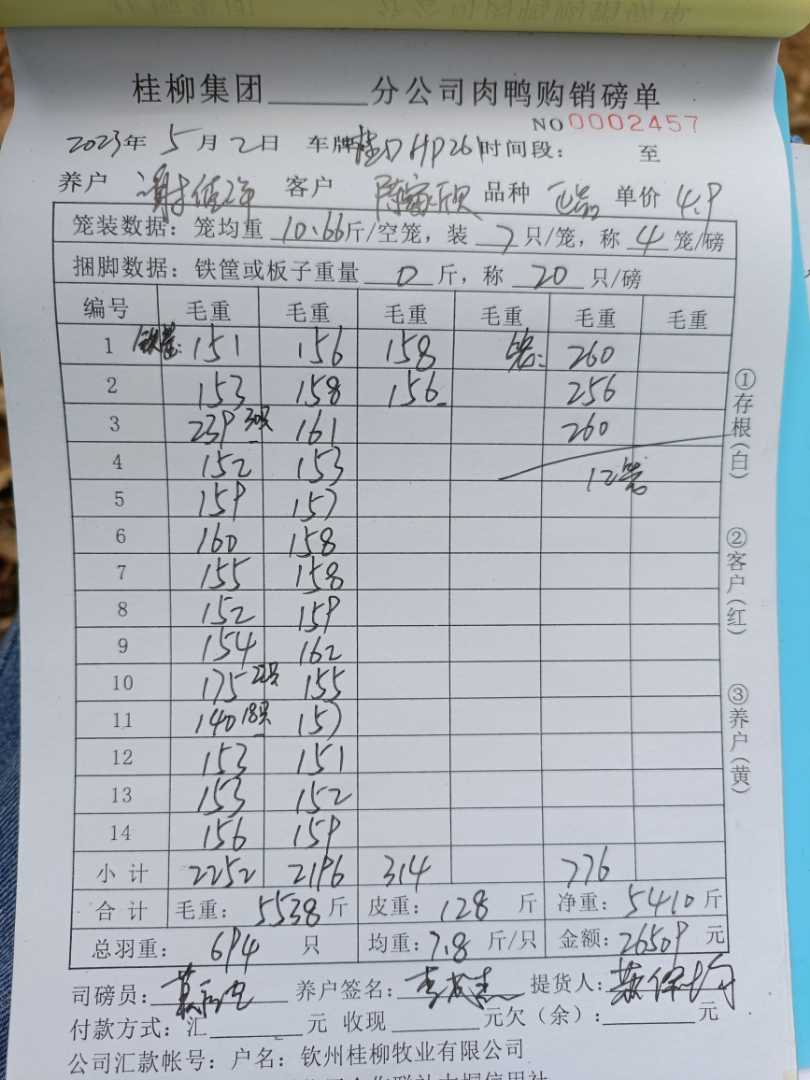 桂柳集团______分公司肉鸭购销磅单
NO 0002457
2023年 5月 2日 车牌 HP261 时间段: 至
养户 客户 品种 单价 4.9
笼装数据: 笼均重 10.66斤/空笼, 装 7 只/笼, 称 4 笼/磅
捆脚数据: 铁筐或板子重量 0 斤, 称 20 只/磅
编号 毛重 毛重 毛重 毛重 毛重 毛重
1 铁筐: 151 156 158 笼: 260
2 153 158 156 256
3 239 30只 161 260
4 152 153 12笼
5 159 157
6 160 158
7 155 158
8 152 159
9 154 162
10 175 22只 155
11 140 18只 157
12 153 151
13 153 152
14 156 159
小计 2252 2196 314 776
合计 毛重: 5538斤 皮重: 128 斤 净重: 5410斤
总羽重: 694 只 均重: 7.8 斤/只 金额: 26509 元
①存根(白)
②客户(红)
③养户(黄)
司磅员: 养户签名: 提货人:
付款方式: 汇______元 收现______元欠(余):______元
公司汇款帐号: 户名: 钦州桂柳牧业有限公司